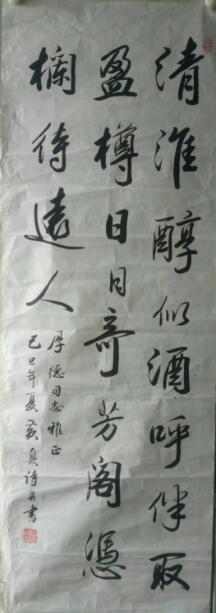 清淮醇似酒呼伴取
盈樽日日奇芳阁凭
栏待远人
厚德同志雅正
己巳年夏 诗并书